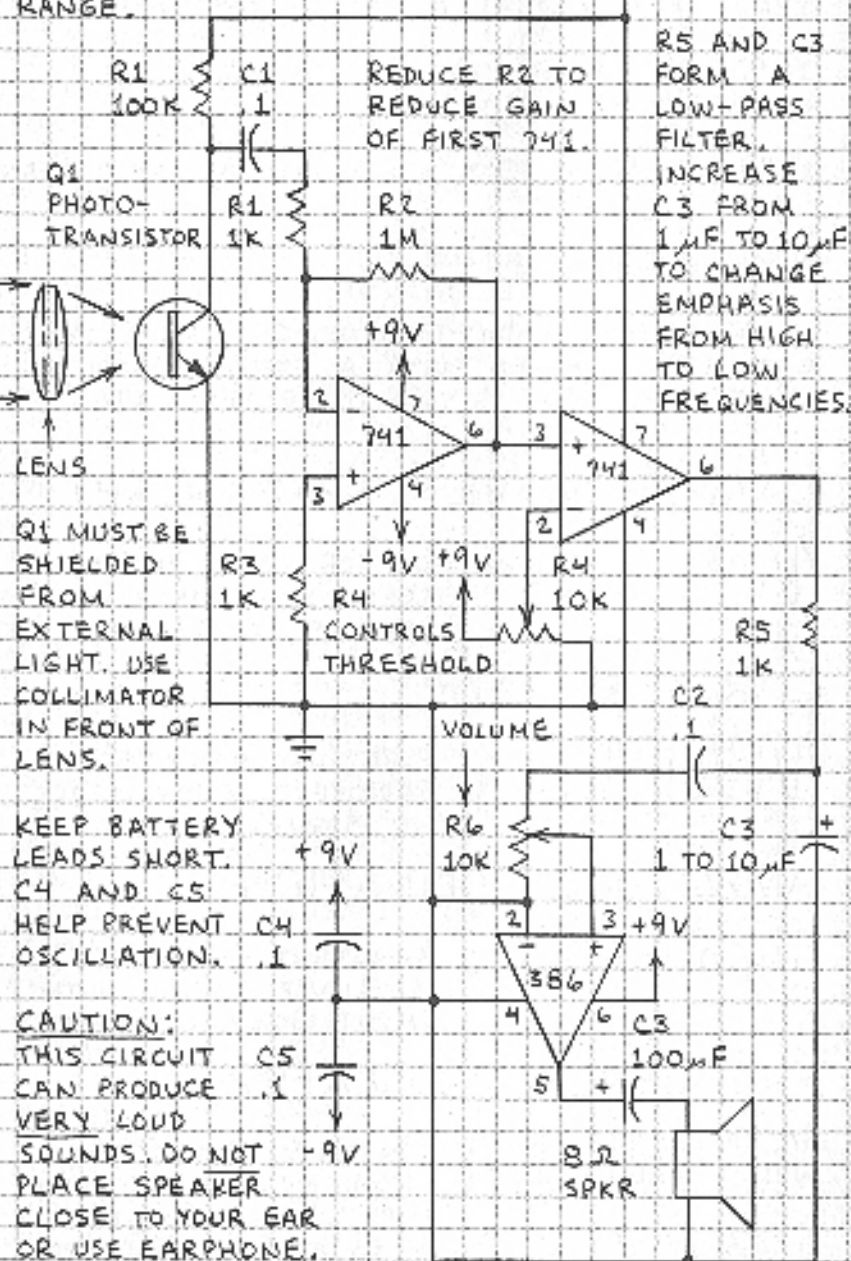 RANGE.
R1
100K
C1
.1
REDUCE R2 TO
REDUCE GAIN
OF FIRST 741.
R5 AND C3
FORM A
LOW-PASS
FILTER.
INCREASE
C3 FROM
1 µF TO 10 µF
TO CHANGE
EMPHASIS
FROM HIGH
TO LOW
FREQUENCIES.
Q1
PHOTO-
TRANSISTOR
R1
1K
R2
1M
+9V
2
-
7
741
6
+
3
4
-9V
3
+
7
741
6
-
2
4
LENS
Q1 MUST BE
SHIELDED
FROM
EXTERNAL
LIGHT. USE
COLLIMATOR
IN FRONT OF
LENS.
R3
1K
+9V
R4
10K
R4
CONTROLS
THRESHOLD
R5
1K
C2
.1
VOLUME
R6
10K
C3
1 TO 10 µF
+
KEEP BATTERY
LEADS SHORT.
C4 AND C5
HELP PREVENT
OSCILLATION.
+9V
C4
.1
2
-
3
+
+9V
386
4
6
5
C3
100µF
+
CAUTION:
THIS CIRCUIT
CAN PRODUCE
VERY LOUD
SOUNDS. DO NOT
PLACE SPEAKER
CLOSE TO YOUR EAR
OR USE EARPHONE.
C5
.1
-9V
8Ω
SPKR